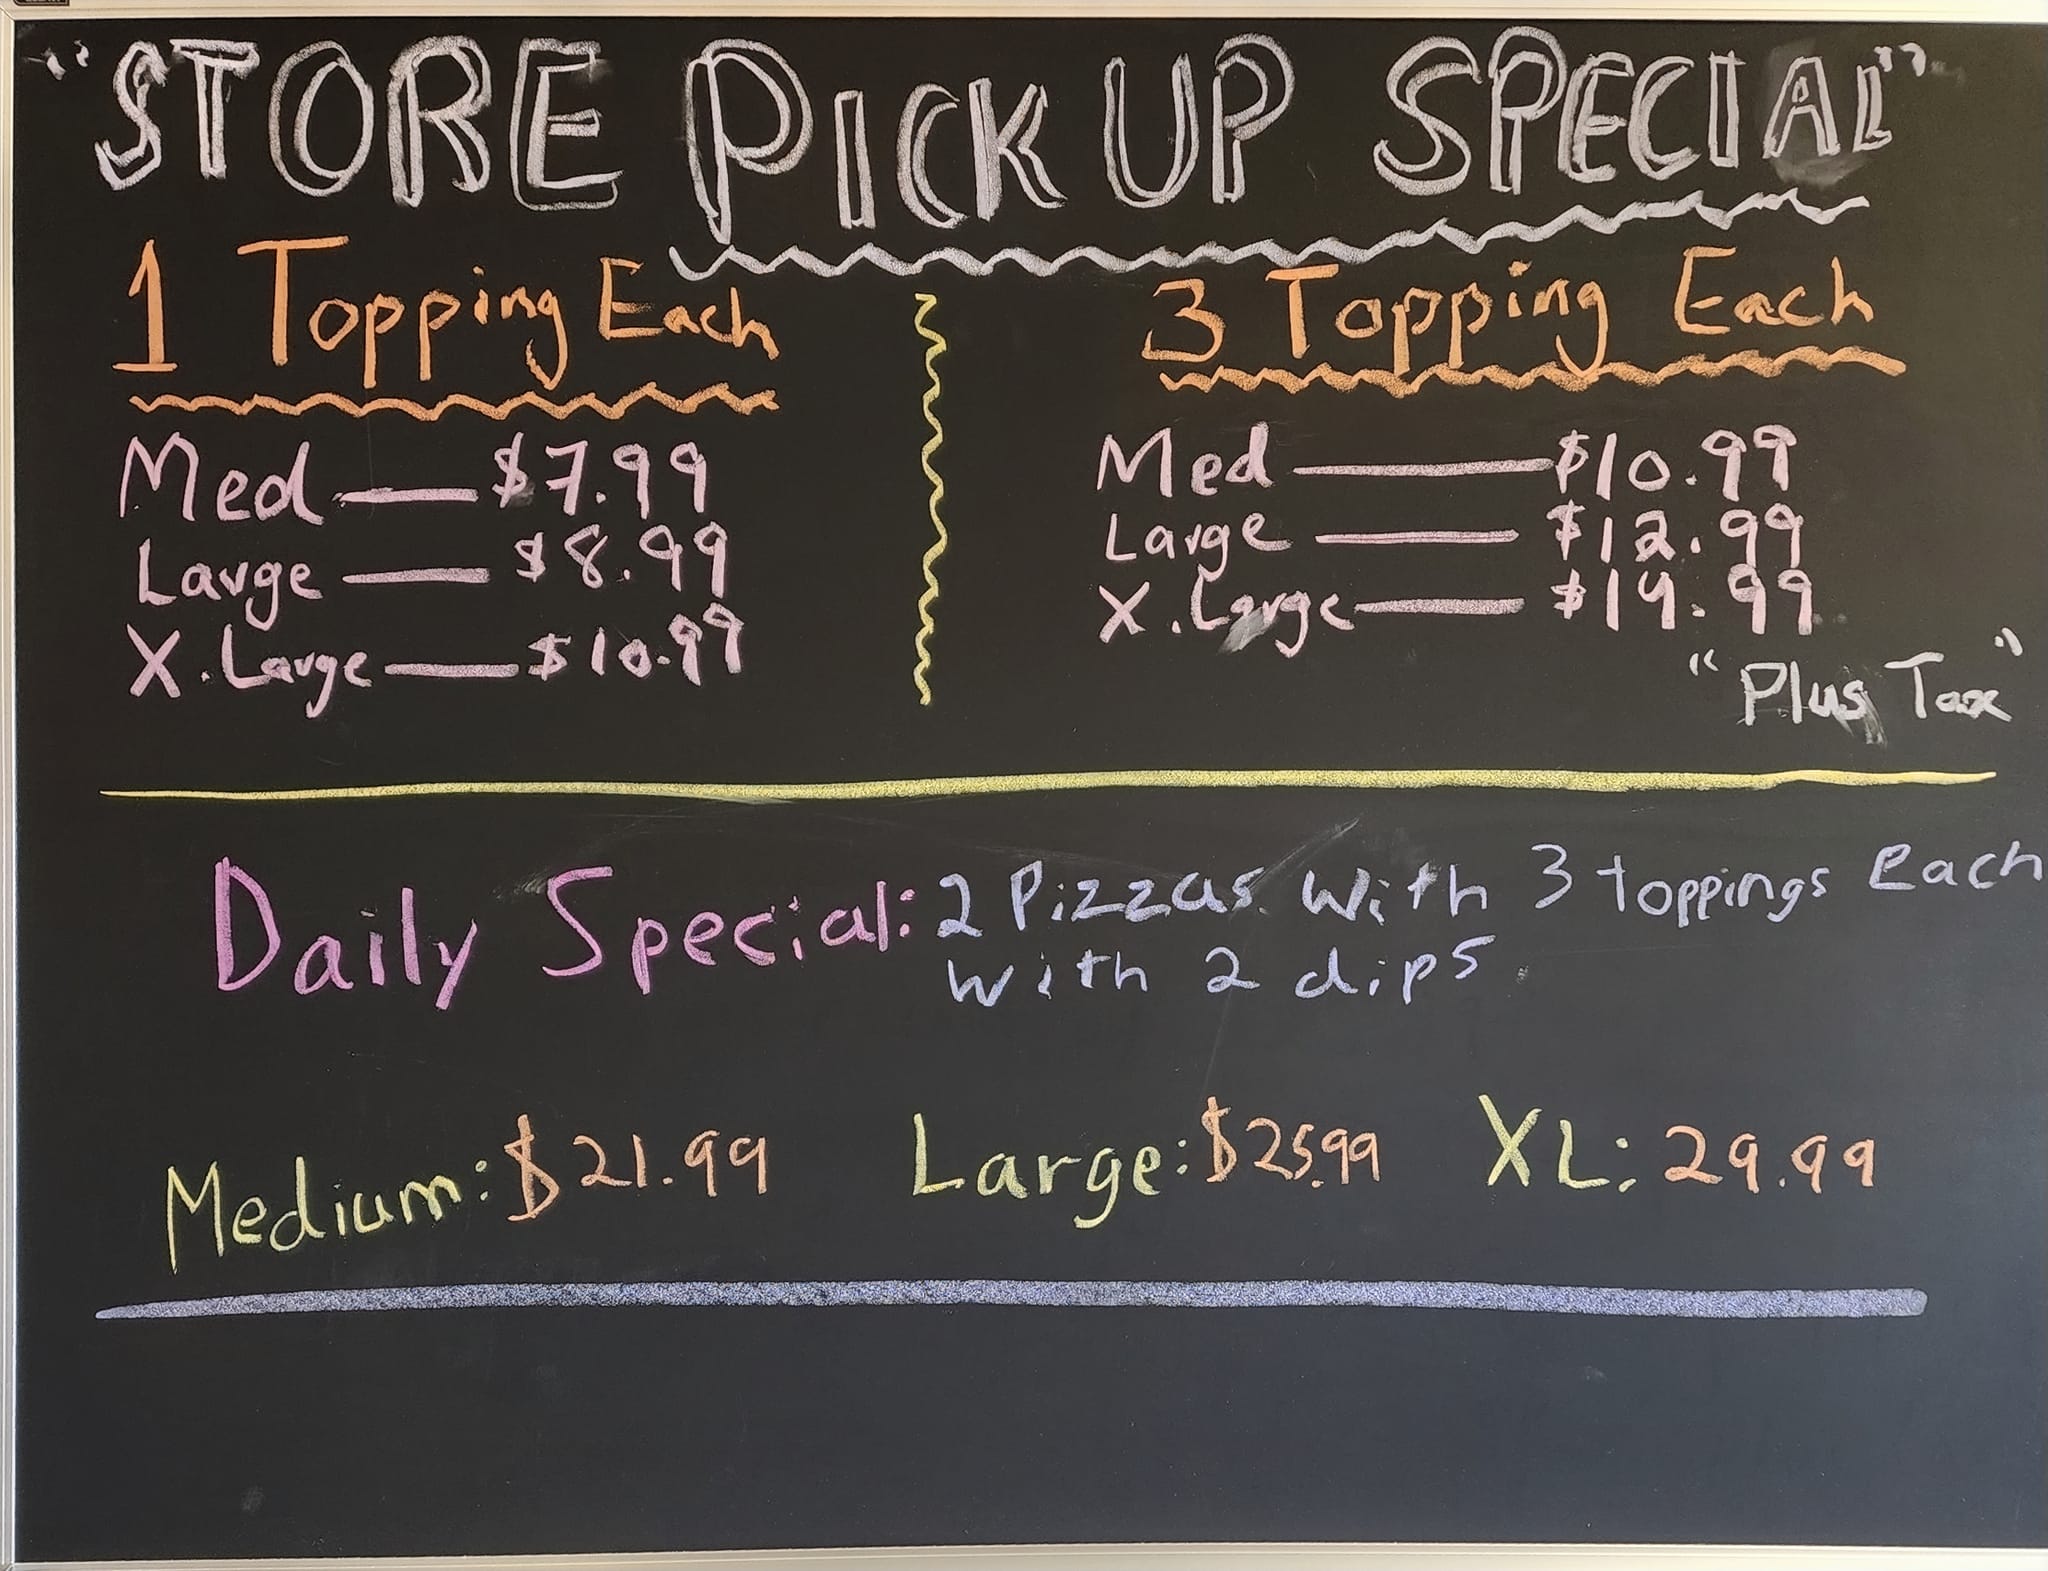 "STORE PICK UP SPECIAL"
1 Topping Each
Med — $7.99
Large — $8.99
X.Large — $10.99
3 Topping Each
Med — $10.99
Large — $12.99
X.Large — $14.99
"Plus Tax"
Daily Special: 2 Pizzas with 3 toppings each
with 2 dips
Medium: $21.99 Large: $25.99 XL: 29.99